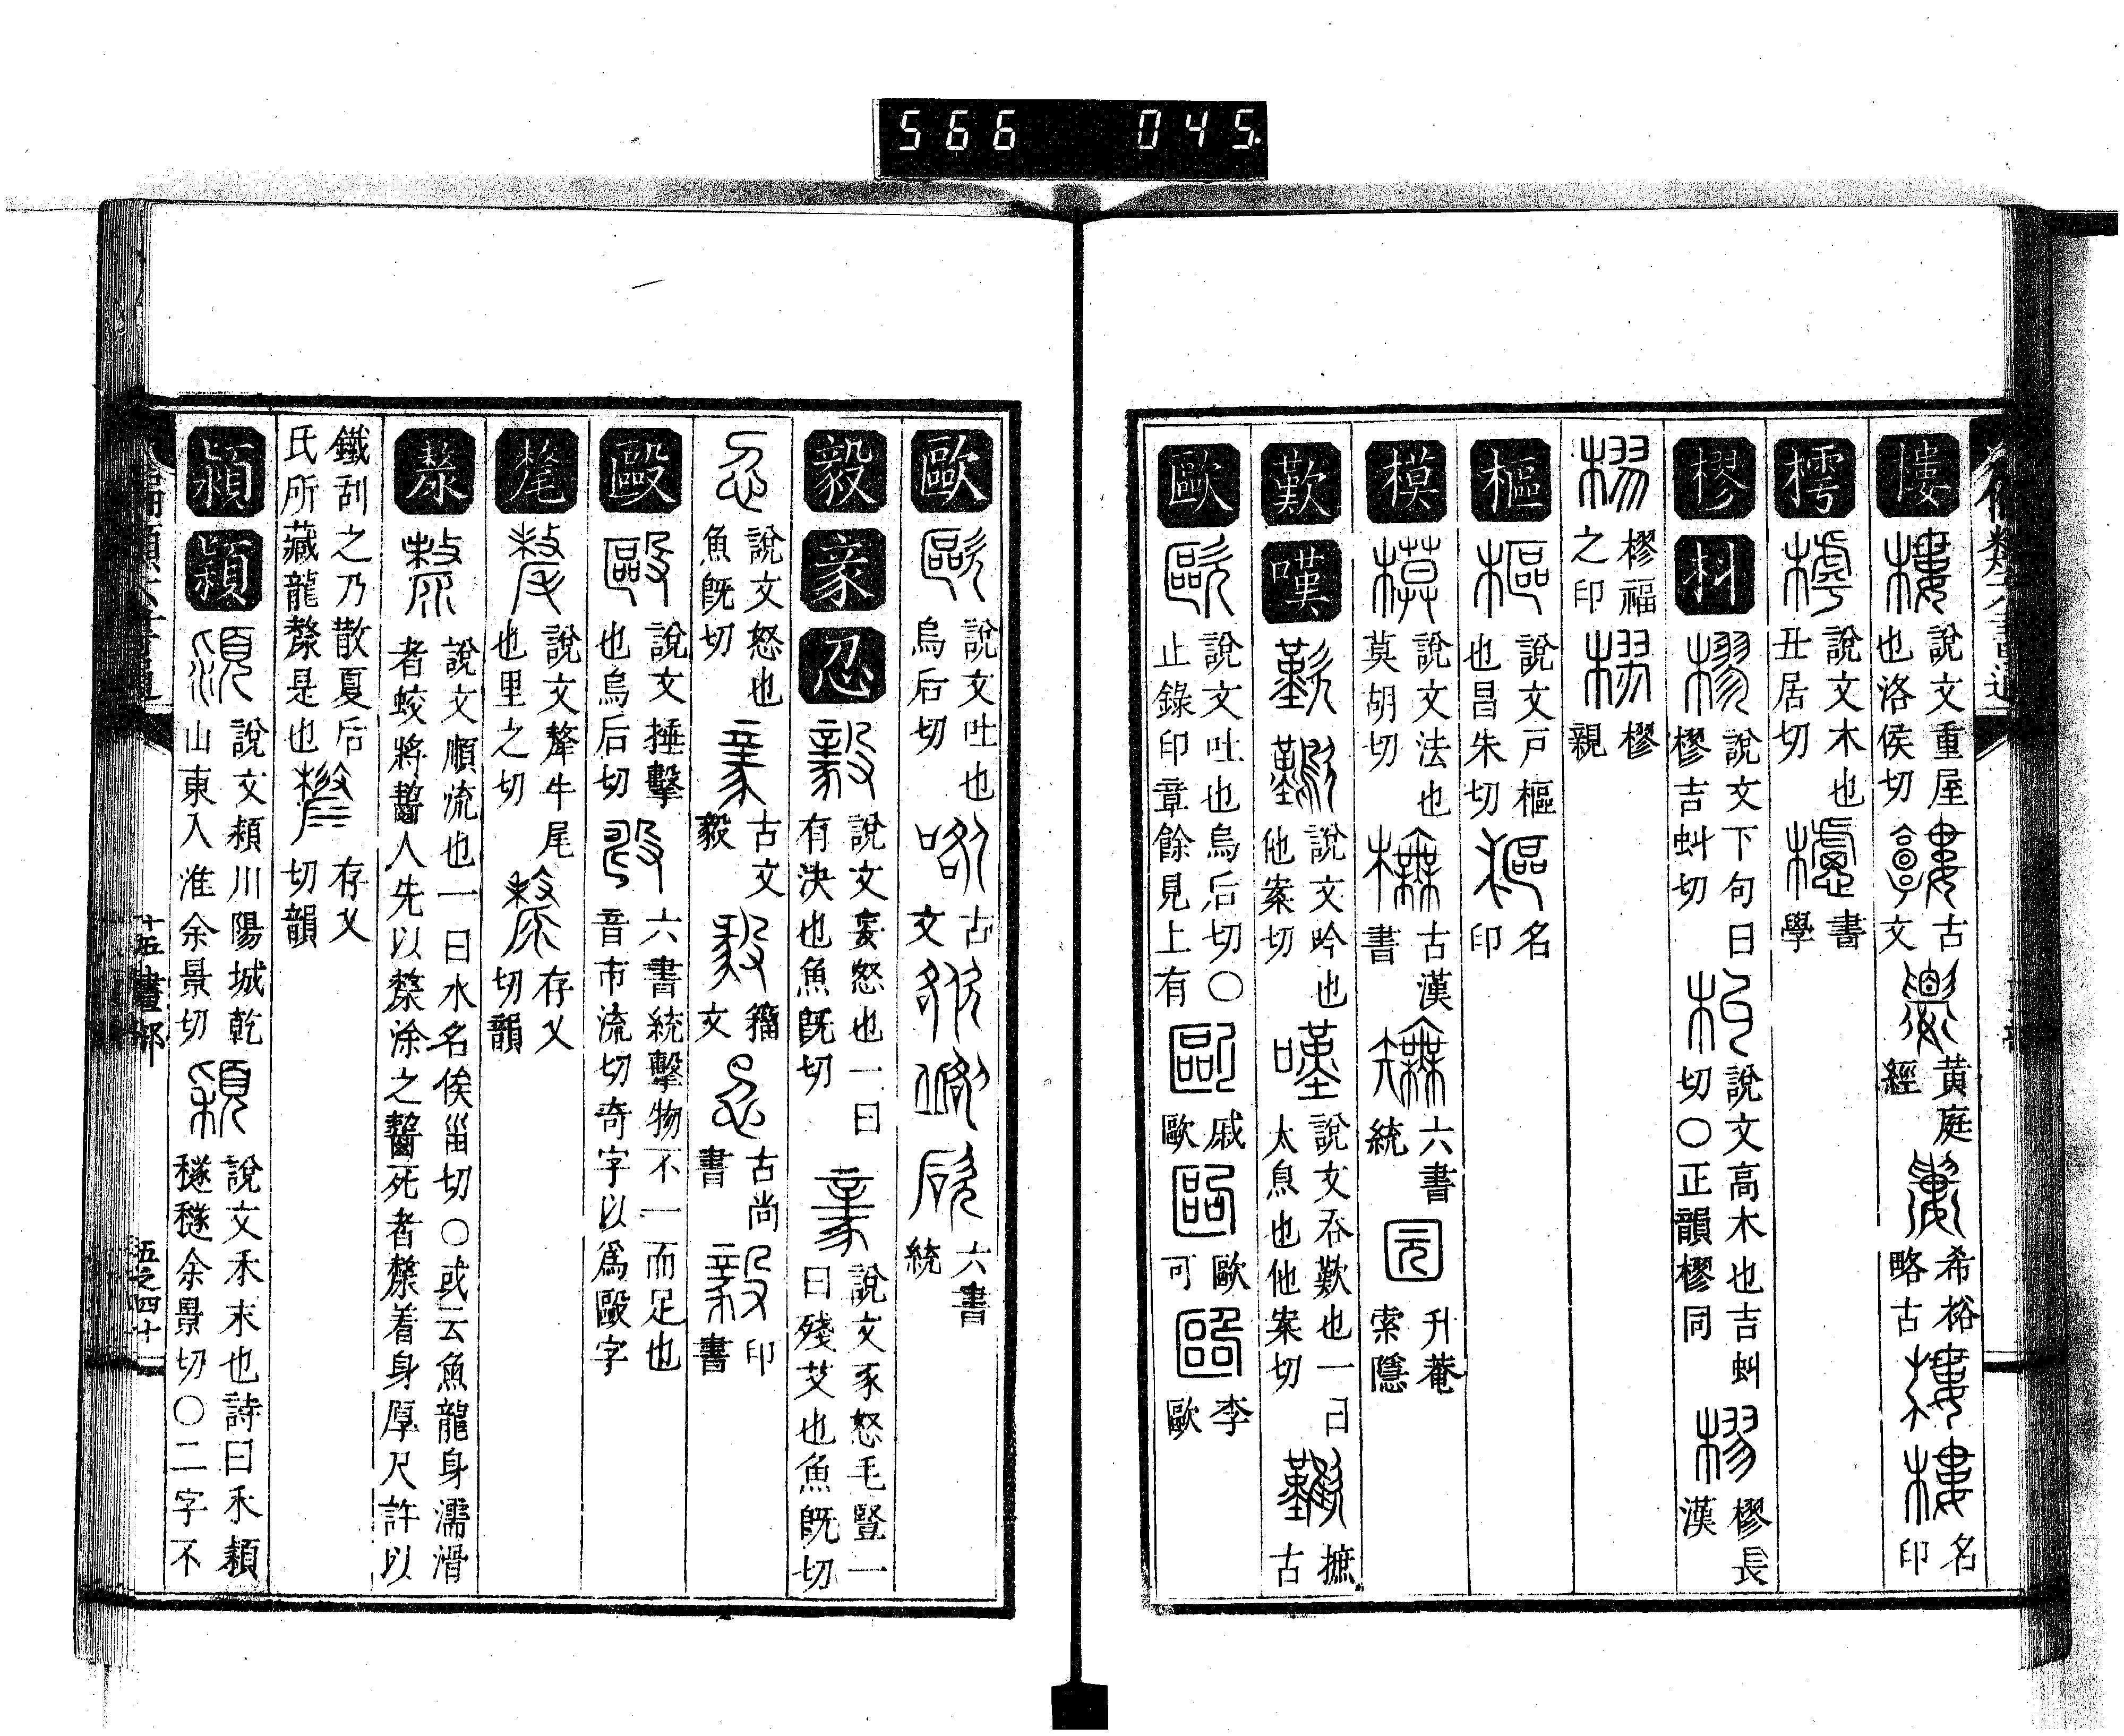 566 045.
樓 樓 說文重屋也洛侯切 古文 黃庭經 希裕略古 名印
樗 樗 說文木也丑居切 書學
樛 朻 樛 說文下句曰樛吉虯切 朻 說文高木也吉虯切〇正韻樛同 樛 樛長漢
樛 樛福之印 樛 樛親
樞 樞 說文戶樞也昌朱切 樞 名印
模 模 說文法也莫胡切 古漢書 六書統 升菴索隱
歎 嘆 歎 說文吟也他案切 嘆 說文吞歎也一曰太息也他案切 摭古
歐 歐 說文吐也烏后切〇止錄印章餘見上有 歐 戚歐 歐 歐可 歐 李歐
歐 歐 說文吐也烏后切 古文 六書統
毅 豙 忍 毅 說文妄怒也一曰有決也魚旣切 豙 說文豕怒毛豎一曰殘艾也魚旣切
說文怒也魚旣切 古文毅 籀文 古尚書 印書
毆 毆 說文捶擊也烏后切 六書統擊物不一而足也音市流切奇字以爲毆字
氂 氂 說文犛牛尾也里之切 存乂切韻
漦 漦 說文順流也一曰水名俟甾切〇或云魚龍身濡滑者蛟將齧人先以漦涂之齧死者漦着身厚尺許以
鐵刮之乃散夏后氏所藏龍漦是也 存乂切韻
潁 穎 潁 說文潁川陽城乾山東入淮余景切 穎 說文禾末也詩曰禾穎穟穟余景切〇二字不
十五畫部 五之四十一